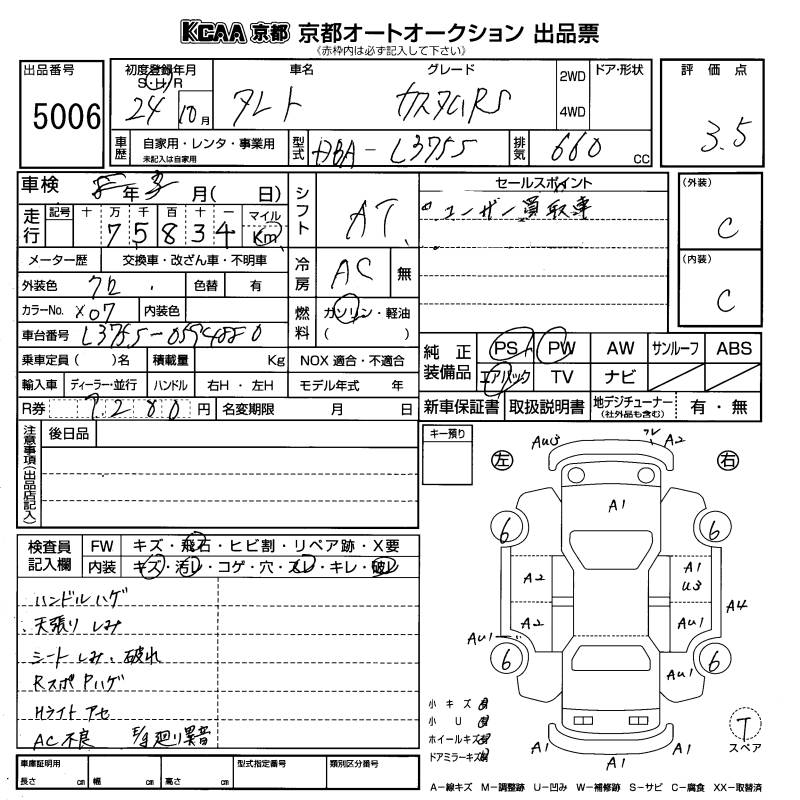 KCAA 京都 京都オートオークション 出品票
《赤枠内は必ず記入して下さい》
出品番号 5006
初度登録年月 S・H・R 24 10月
車名 タント
グレード カスタムRS
2WD
4WD
ドア・形状
評価点 3.5
車歴 自家用・レンタ・事業用
未記入は自家用
型式 DBA-L375S
排気 660 CC
車検 年 月( 日)
走行 記号 十 万 千 百 十 一 マイル Km
7 5 8 3 4
メーター歴 交換車・改ざん車・不明車
外装色 クロ 色替 有
カラーNo. X07 内装色
車台番号
乗車定員 ( )名 積載量 Kg
NOX 適合・不適合
輸入車 ディーラー・並行 ハンドル 右H・左H モデル年式 年
R券 7200 円 名変期限 月 日
シフト AT
冷房 AC 無
燃料 ガソリン・軽油
( )
セールスポイント
ユーザー買取車
(外装) C
(内装) C
純正装備品 PS PW AW サンルーフ ABS
エアバック TV ナビ
新車保証書 取扱説明書 地デジチューナー (社外品も含む) 有・無
注意事項(出品店記入)
後日品
キー預り
左
右
AU3
A2
A1
6
6
A2
A1
U3
A4
A2
AU1
AU1
6
6
AU1
A1
A1
A1
検査員記入欄
FW キズ・飛石・ヒビ割・リペア跡・X要
内装 キズ・汚レ・コゲ・穴・スレ・キレ・破レ
ハンドルハゲ
天張りしみ
シートしみ・破れ
RスポPハゲ
Hライトアセ
AC不良 E/g廻り異音
小キズ
小U
ホイールキズ
ドアミラーキズ
T
スペア
車庫証明用
長さ cm 幅 cm 高さ cm
型式指定番号
類別区分番号
A-線キズ M-調整跡 U-凹み W-補修跡 S-サビ C-腐食 XX-取替済